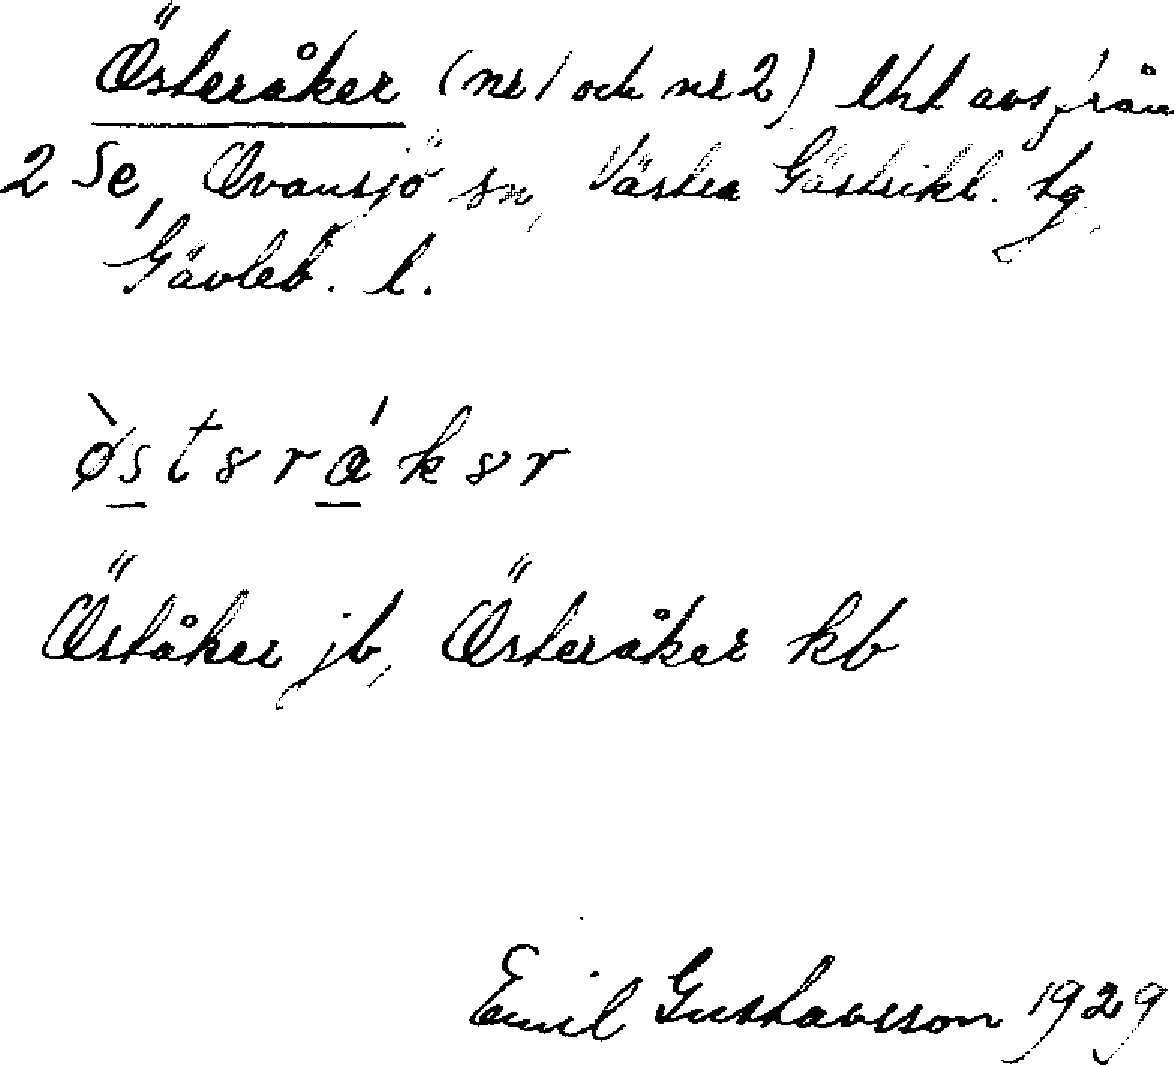 Österåker (nr 1 och nr 2) lht avs från
2 Se, Ovansjö sn, Västra Gästrikl. tg,
Gävleb. l.
ø̀stərákər
Öståker jb, Österåker kb
Emil Gustavsson 1929